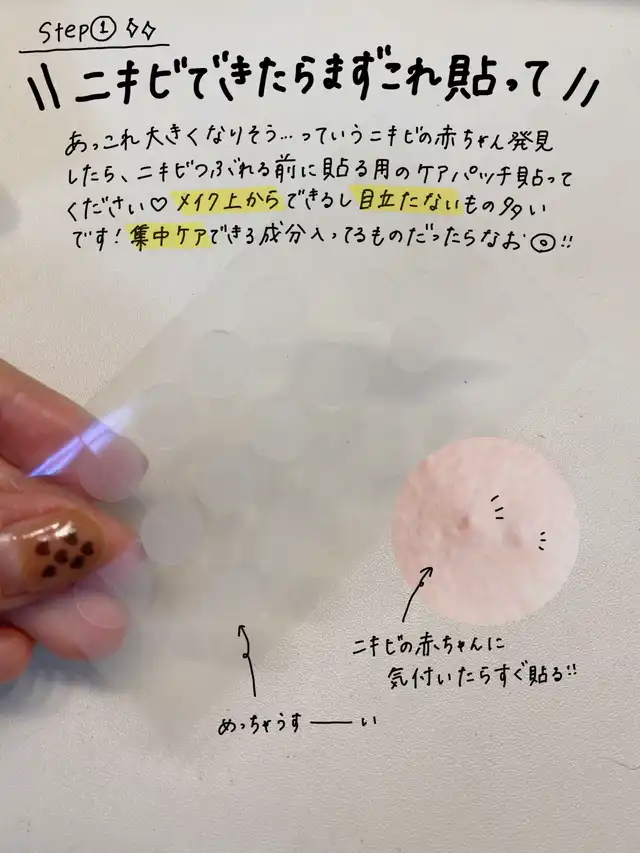 Step①
ニキビできたらまずこれ貼って
あっこれ大きくなりそう…っていうニキビの赤ちゃん発見
したら、ニキビつぶれる前に貼る用のケアパッチ貼って
ください♡メイク上からできるし目立たないもの多い
です！集中ケアできる成分入ってるものだったらなお◎!!
ニキビの赤ちゃんに
気付いたらすぐ貼る!!
めっちゃうす──い